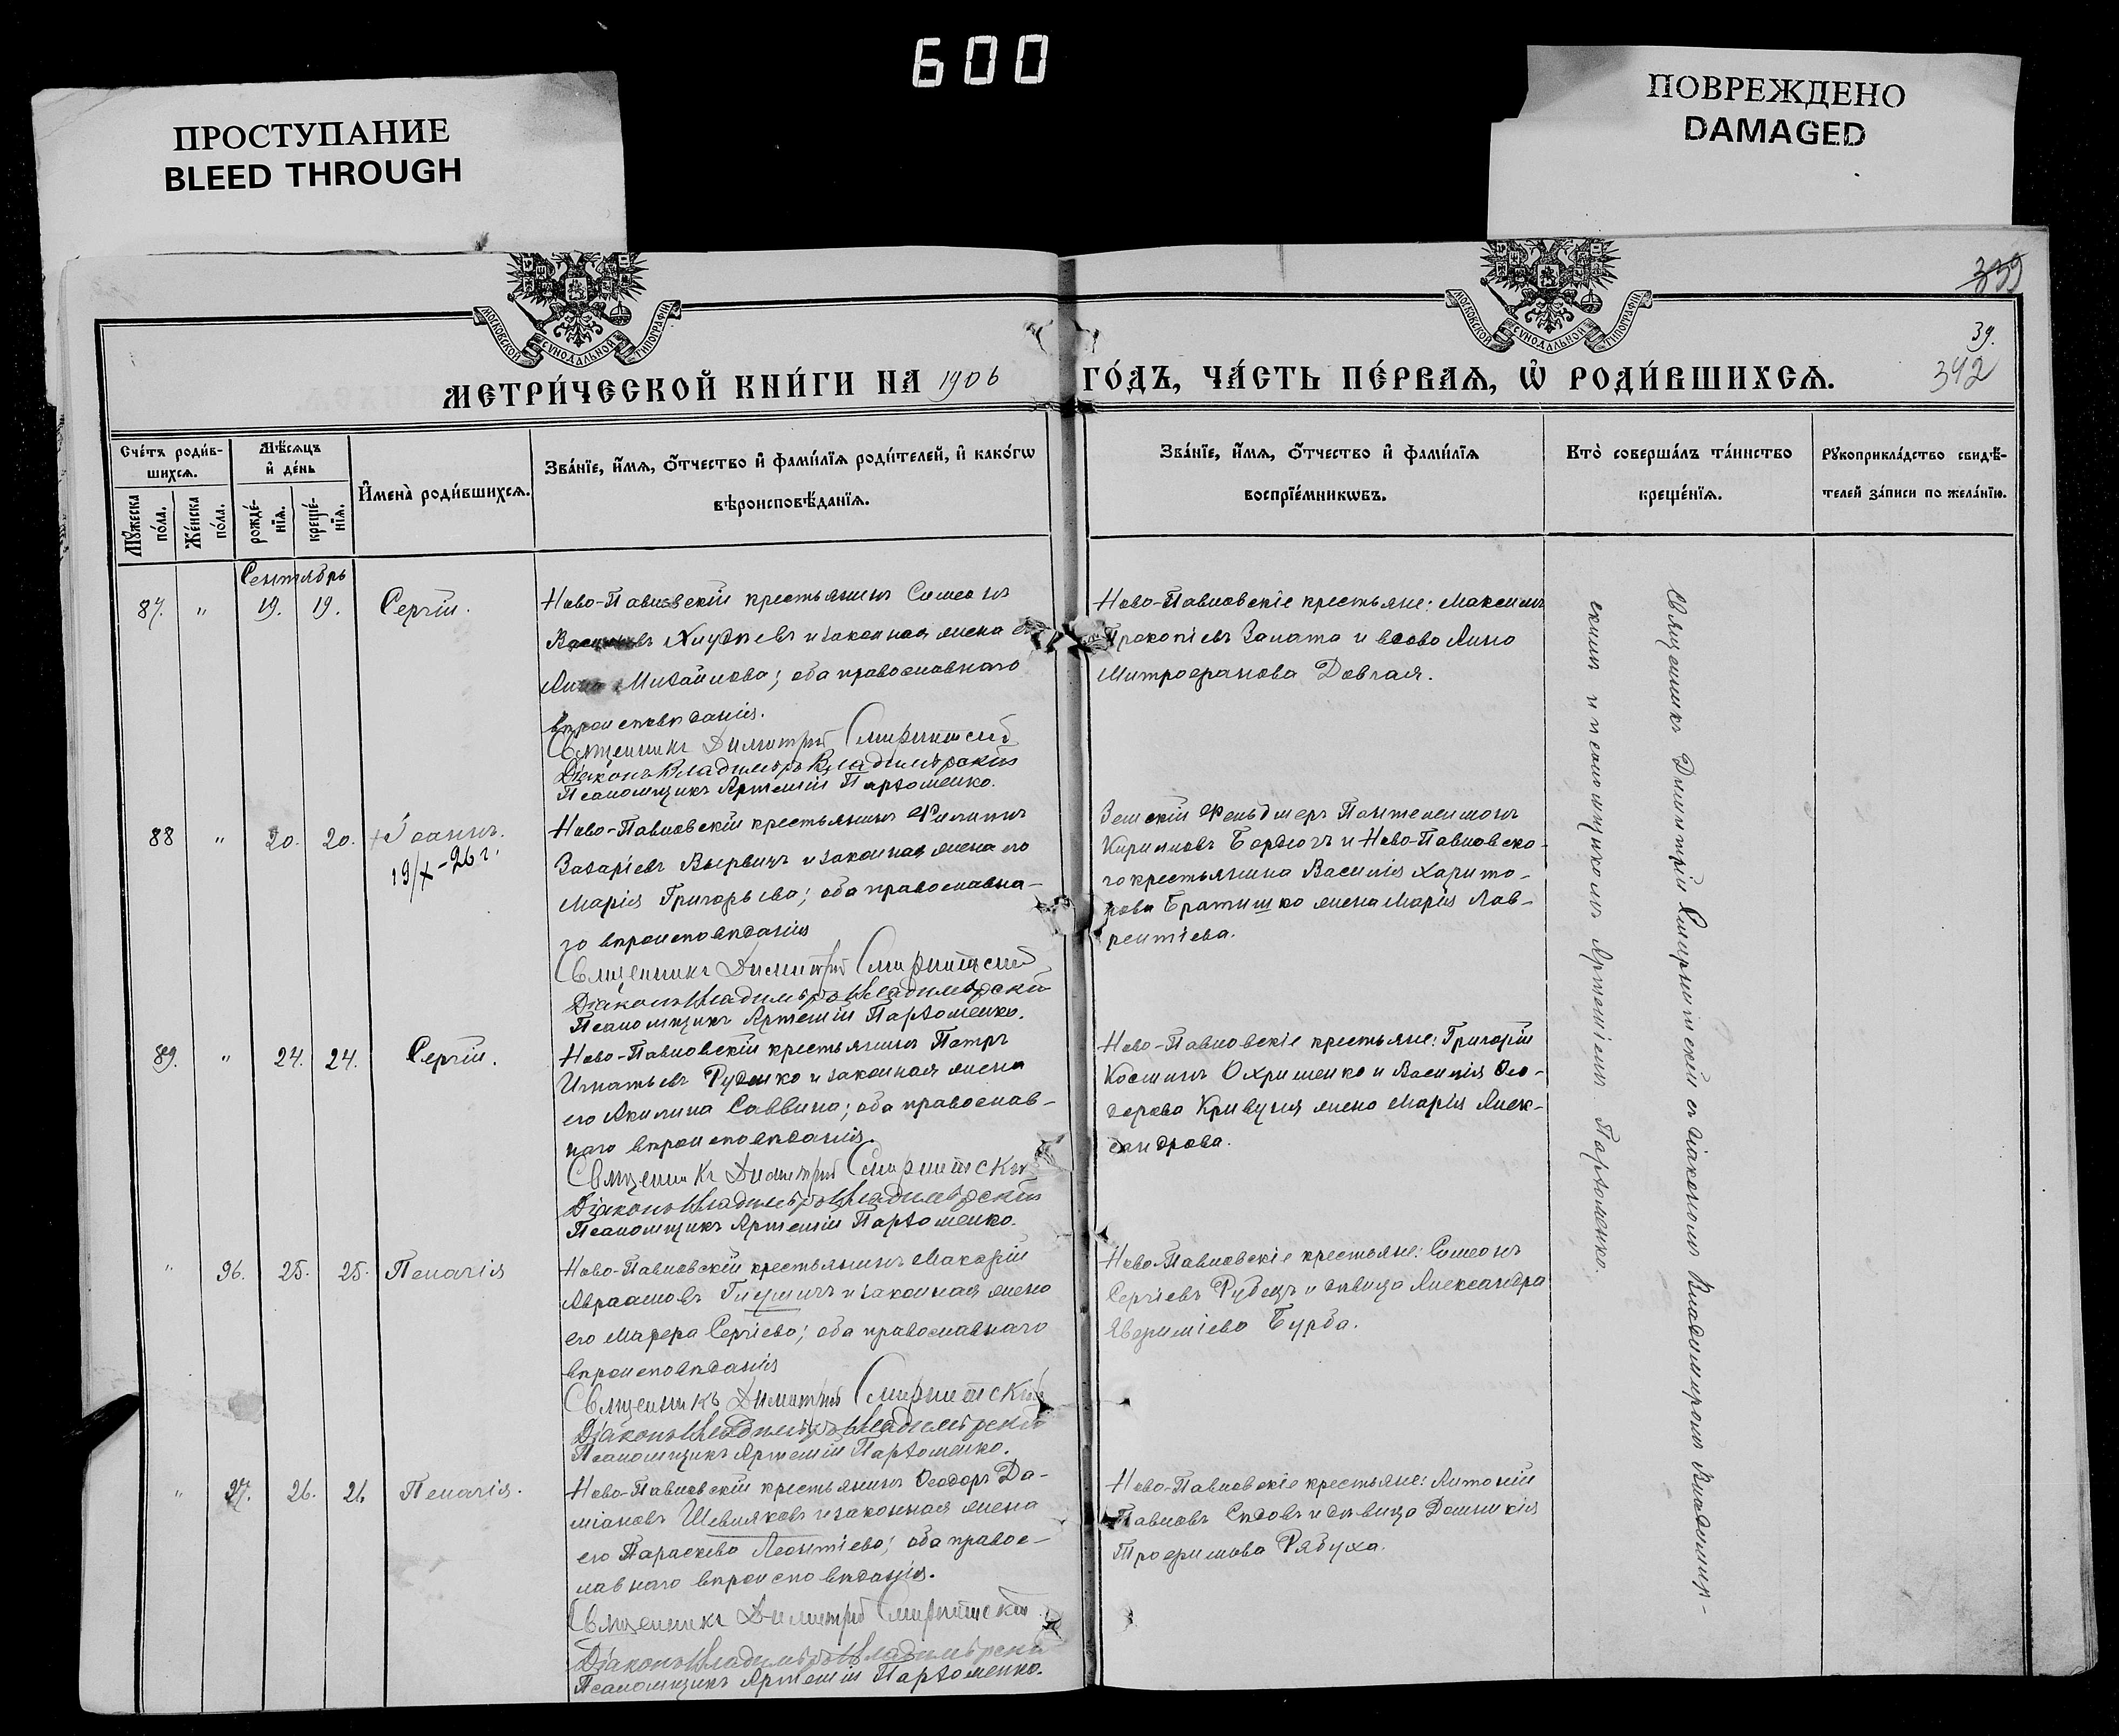 600
ПРОСТУПАНИЕ
BLEED THROUGH
ПОВРЕЖДЕНО
DAMAGED
МОСКОВСКОЙ СѴНОДАЛЬНОЙ ТИПОГРАФІИ
МОСКОВСКОЙ СѴНОДАЛЬНОЙ ТИПОГРАФІИ
339
39.
342
МЕТРИ́ЧЕСКОЙ КНИ́ГИ НА 1906 ГО́ДЪ, ЧА́СТЬ ПЕ́РВАѦ, Ѡ҆ РОДИ́ВШИХСѦ.
Сче́тъ роди́в-
шихсѧ.
Мѹ́жеска по́ла.
Же́нска по́ла.
Мѣ́сѧцъ
и҆ де́нь
рожде́-
нїѧ.
креще́-
нїѧ.
И҆мена̀ роди́вшихсѧ.
Зва́нїе, и҆́мѧ, ѻ҆́тчество и҆ фами́лїѧ роди́телей, и҆ како́гѡ
вѣроисповѣ́данїѧ.
Зва́нїе, и҆́мѧ, ѻ҆́тчество и҆ фами́лїѧ
воспрїе́мникѡвъ.
Кто̀ соверша́лъ та́инство
креще́нїѧ.
Рѹкоприкла́дство свидѣ́-
телей за́писи по жела́нїю.
Сентябрь
87. " 19. 19. Сергій.
Ново-Павловскій крестьянинъ Симеонъ
и законная жена
Михайлова; оба православнаго
вѣроисповѣданія.
Священникъ Димитрій Смирнитскій
Діаконъ Владиміръ Владимірскій
Псаломщикъ Артемій Пархоменко.
Ново-Павловскіе крестьяне: Максимъ
Прокопіевъ Запата и вдова Анна
Митрофанова Довгая.
88 " 20. 20. + Іоаннъ.
19/X-26 г.
Ново-Павловскій крестьянинъ Филиппъ
Захаріевъ Вырвичъ и законная жена его
Марія Григорьева; оба православна-
го вѣроисповѣданія
Священникъ Димитрій Смирнитскій
Діаконъ Владиміръ Владимірскій
Псаломщикъ Артемій Пархоменко.
Земскій Фельдшеръ Пантелеимонъ
Кирилловъ и Ново-Павловска-
го крестьянина Василія Харито-
нова Братишко жена Марія Лав-
рентіева.
89. " 24. 24. Сергій.
Ново-Павловскій крестьянинъ Петръ
Игнатьевъ Руденко и законная жена
его Акилина Саввина; оба православ-
наго вѣроисповѣданія.
Священникъ Димитрій Смирнитскій
Діаконъ Владиміръ Владимірскій
Псаломщикъ Артемій Пархоменко.
Ново-Павловскіе крестьяне: Григорій
Косминъ Охрименко и Василія Ѳео-
дорова Кривуля жена Марія Алек-
сандрова.
" 96. 25. 25. Пелагія
Ново-Павловскій крестьянинъ Макарій
Авраамовъ и законная жена
его Марфа Сергіева; оба православнаго
вѣроисповѣданія
Священникъ Димитрій Смирнитскій
Діаконъ Владиміръ Владимірскій
Псаломщикъ Артемій Пархоменко.
Ново-Павловскіе крестьяне: Симеонъ
Сергіевъ Рубецъ и дѣвица Александра
Евфиміева Бурба.
" 97. 26. 26 Пелагія.
Ново-Павловскій крестьянинъ Ѳеодоръ Да-
міановъ Шевляковъ и законная жена
его Параскева Леонтіева; оба правос-
лавнаго вѣроисповѣданія.
Священникъ Димитрій Смирнитскій
Діаконъ Владиміръ Владимірскій
Псаломщикъ Артемій Пархоменко.
Ново-Павловскіе крестьяне: Антоній
Павловъ Сѣдовъ и дѣвица Домникія
Трофимова Рябуха.
Священникъ Димитрій Смирнитскій съ діакономъ Владиміромъ Владимір-
скимъ и псаломщикомъ Артеміемъ Пархоменко.